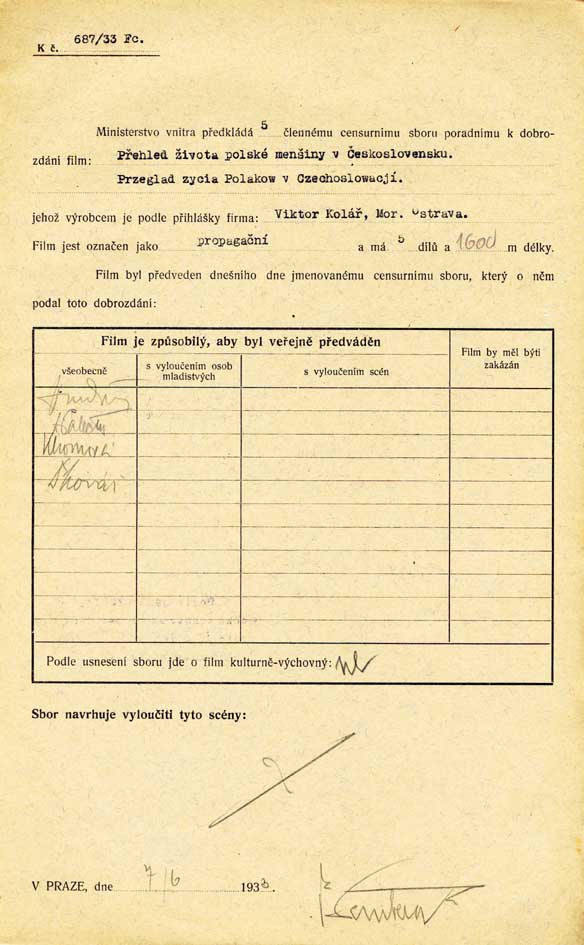 K č. 687/33 Fc.
Ministerstvo vnitra předkládá 5 člennému censurnimu sboru poradnimu k dobro-
zdání film: Přehled života polské menšiny v Československu.
Przeglad zycia Polakow v Czechoslowacjí.
jehož výrobcem je podle přihlášky firma: Viktor Kolář, Mor. Ostrava.
Film jest označen jako propagační a má 5 dílů a 1600 m délky.
Film byl předveden dnešního dne jmenovanému censurnimu sboru, který o něm
podal toto dobrozdání:
Film je způsobilý, aby byl veřejně předváděn
Film by měl býti
zakázán
všeobecně
s vyloučením osob
mladistvých
s vyloučením scén
Podle usnesení sboru jde o film kulturně-výchovný:
Sbor navrhuje vyloučiti tyto scény:
V PRAZE, dne 7/6 1933.